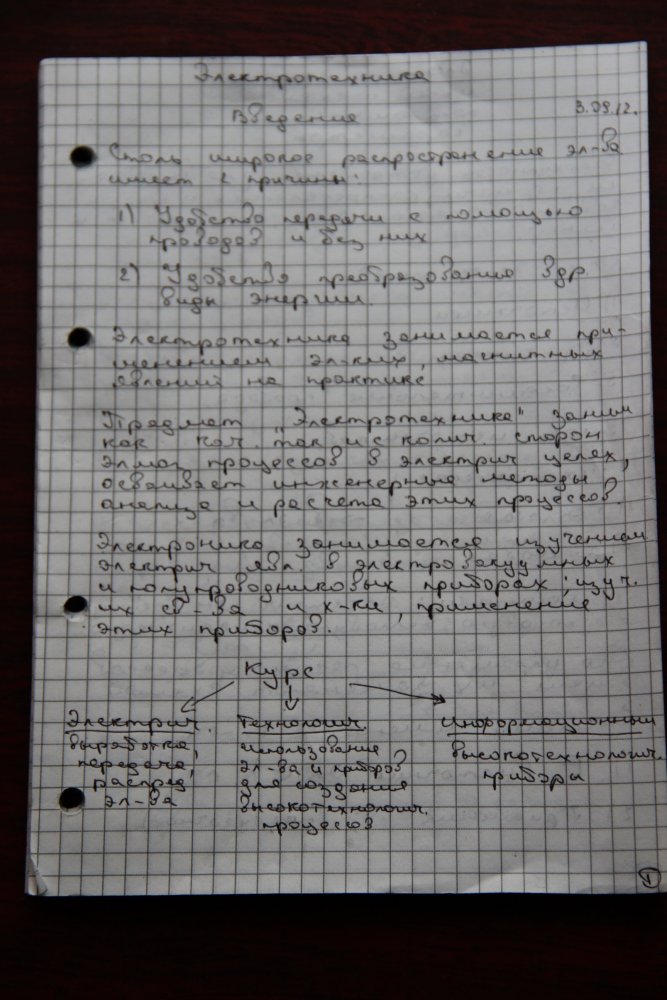 Электротехника
Введение
3.09.12.
Столь широкое распространение эл-ва
имеет 2 причины:
1) Удобство передачи с помощью
проводов и без них
2) Удобства преобразования в др
виды энергии.
Электротехника занимается при-
менением эл-ких, магнитных
явлений на практике
Предмет „Электротехника" заним
как кач. так и с колич. сторон
элмаг процессов в электрич цепях,
осваивает инженерные методы
анализа и расчета этих процессов.
Электроника занимается изучением
электрич явл. в электровакуумных
и полупроводниковых приборах; изуч.
их св-ва и х-ки, применение
этих приборов.
Курс
Электрич.
выработка,
передача,
распред
эл-ва
Технологич.
использование
эл-ва и приборов
для создания
высокотехнологич.
процессов
Информационный
высокотехнологич.
приборы
1